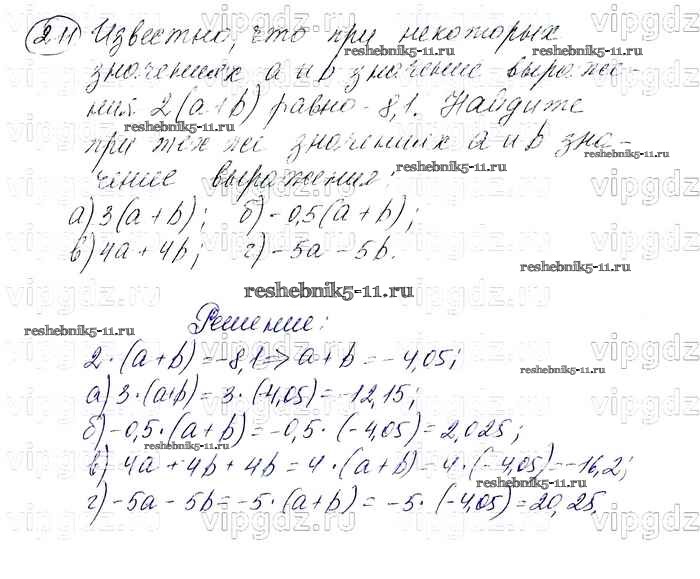 211 Известно, что при некоторых
значениях a и b значение выраже-
ния 2(a+b) равно -8,1. Найдите
при тех же значениях a и b зна-
чение выражения:
а) 3(a+b); б) -0,5(a+b);
в) 4a+4b; г) -5a-5b.
reshebnik5-11.ru
Решение:
2·(a+b)=-8,1⇒a+b=-4,05;
а) 3·(a+b)=3·(-4,05)=-12,15;
б) -0,5·(a+b)=-0,5·(-4,05)=2,025;
в) 4a+4b+4b=4·(a+b)=4·(-4,05)=-16,2;
г) -5a-5b=-5·(a+b)=-5·(-4,05)=20,25.
vipgdz.ru